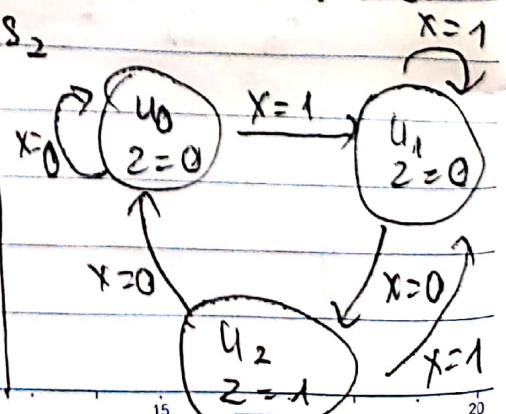 S2
X=1
X=0
U0
Z=0
X=1
U1
Z=0
X=0
X=0
X=1
U2
Z=1
15
20